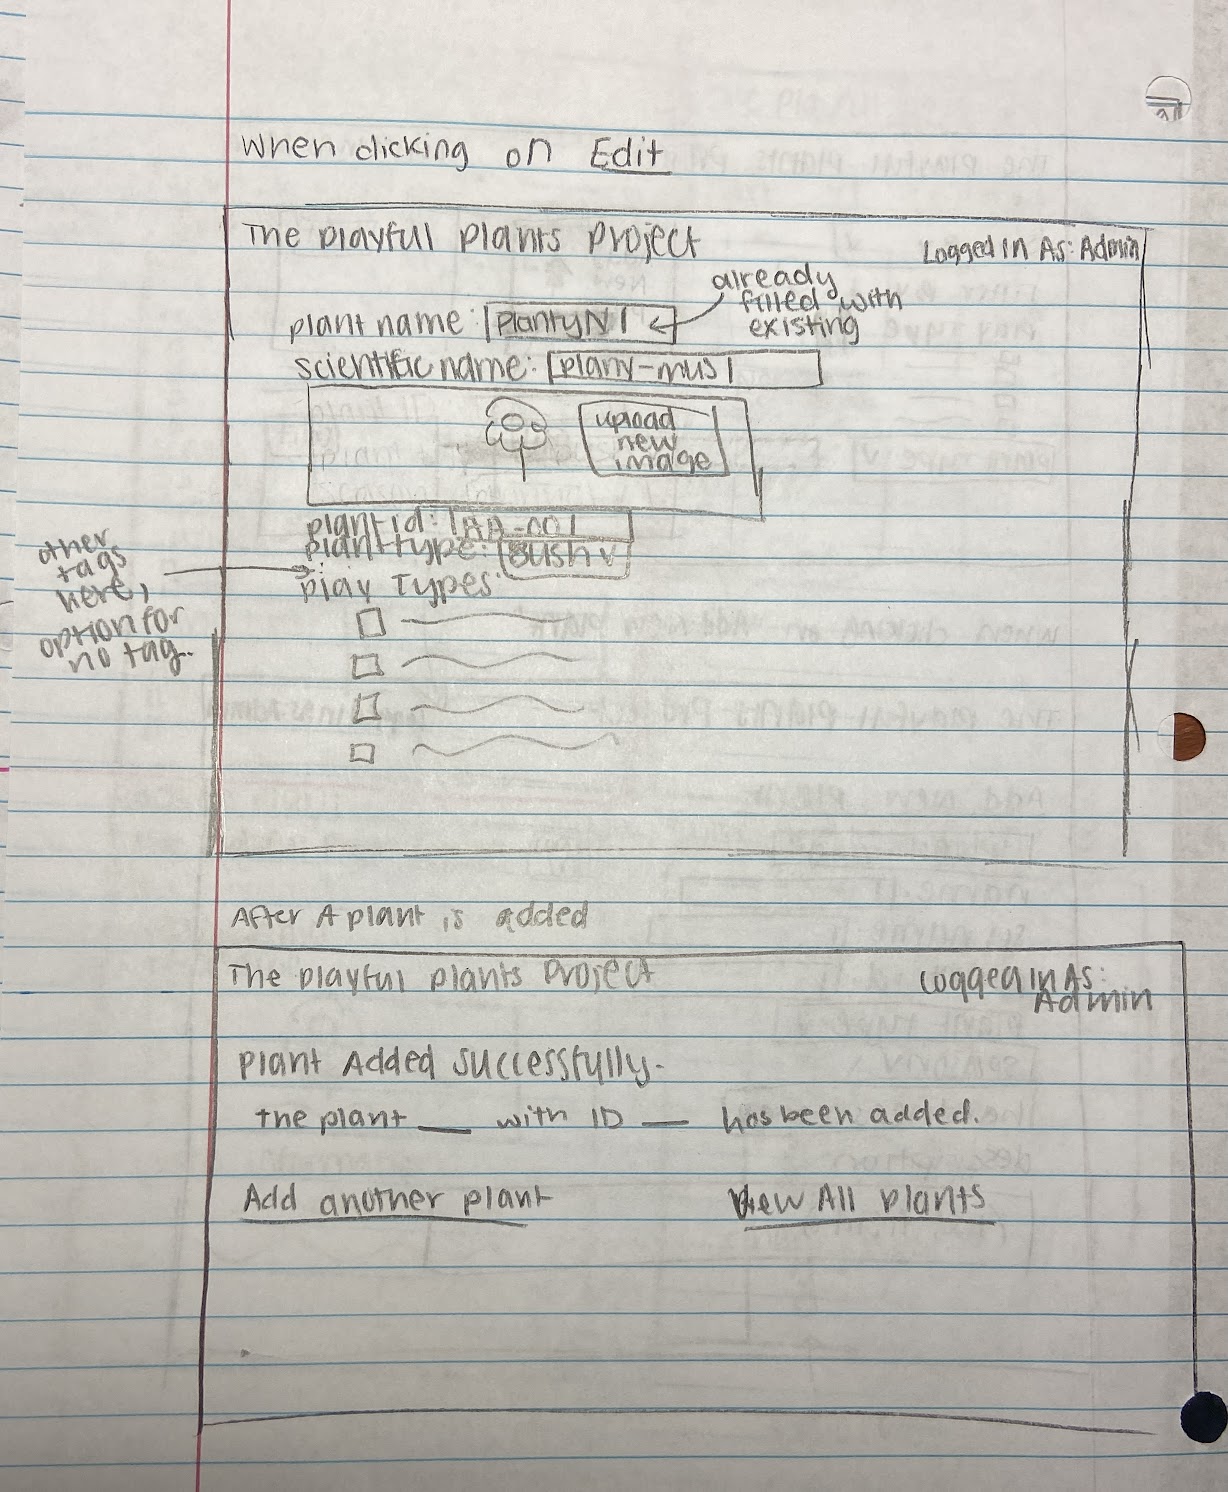 When clicking on Edit
The Playful Plants Project
Logged In As: Admin
already
filled with
existing
plant name: PlantyN
scientific name: plany-mus
upload
new
image
plant id: AA-001
plant type: Bush v
Play Types:
other
tags
here,
option for
no tag.
After A plant is added
The Playful Plants Project
Logged In As:
Admin
Plant Added Successfully.
The plant __ with ID __ has been added.
Add another plant
View All Plants